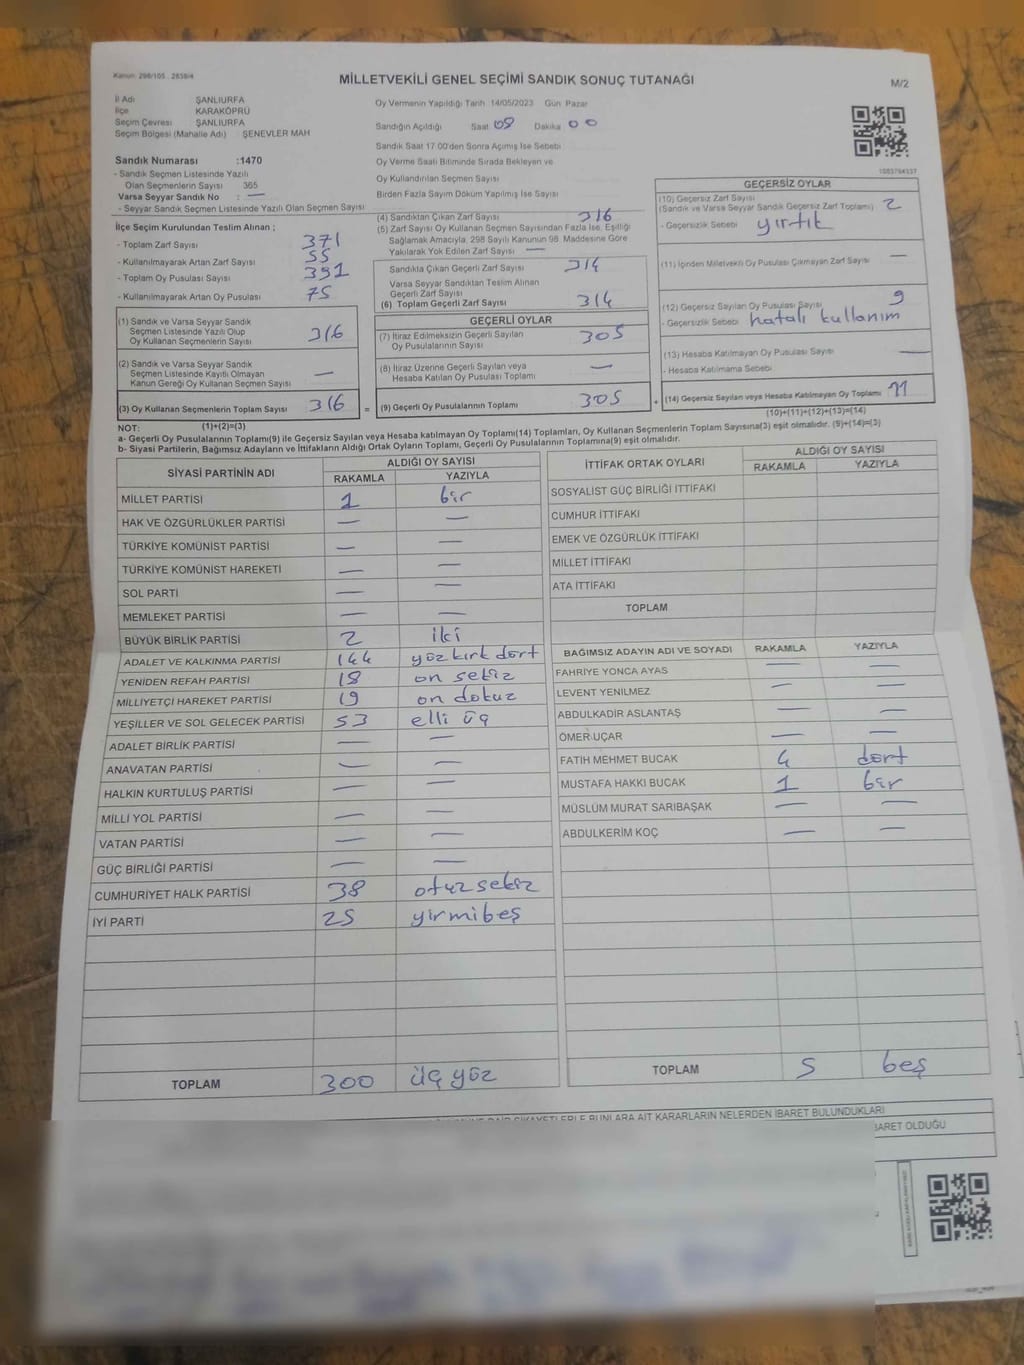 Kanun: 298/105 , 2839/4
MİLLETVEKİLİ GENEL SEÇİMİ SANDIK SONUÇ TUTANAĞI
M/2
İl Adı ŞANLIURFA
İlçe KARAKÖPRÜ
Seçim Çevresi ŞANLIURFA
Seçim Bölgesi (Mahalle Adı) ŞENEVLER MAH
Sandık Numarası :1470
- Sandık Seçmen Listesinde Yazılı
Olan Seçmenlerin Sayısı 365
Varsa Seyyar Sandık No : —
- Seyyar Sandık Seçmen Listesinde Yazılı Olan Seçmen Sayısı
Oy Vermenin Yapıldığı Tarih 14/05/2023 Gün Pazar
Sandığın Açıldığı Saat 08 Dakika 00
Sandık Saat 17.00'den Sonra Açımış İse Sebebi
Oy Verme Saati Bitiminde Sırada Bekleyen ve
Oy Kullandırılan Seçmen Sayısı
Birden Fazla Sayım Döküm Yapılmış İse Sayısı
İlçe Seçim Kurulundan Teslim Alınan ;
- Toplam Zarf Sayısı 371
- Kullanılmayarak Artan Zarf Sayısı 55
- Toplam Oy Pusulası Sayısı 391
- Kullanılmayarak Artan Oy Pusulası 75
(1) Sandık ve Varsa Seyyar Sandık
Seçmen Listesinde Yazılı Olup
Oy Kullanan Seçmenlerin Sayısı 316
(2) Sandık ve Varsa Seyyar Sandık
Seçmen Listesinde Kayıtlı Olmayan
Kanun Gereği Oy Kullanan Seçmen Sayısı —
(3) Oy Kullanan Seçmenlerin Toplam Sayısı 316 =
(1)+(2)=(3)
(4) Sandıktan Çıkan Zarf Sayısı 316
(5) Zarf Sayısı Oy Kullanan Seçmen Sayısından Fazla İse, Eşitliği
Sağlamak Amacıyla, 298 Sayılı Kanunun 98. Maddesine Göre
Yakılarak Yok Edilen Zarf Sayısı —
Sandıkla Çıkan Geçerli Zarf Sayısı 314
Varsa Seyyar Sandıktan Teslim Alınan
Geçerli Zarf Sayısı
(6) Toplam Geçerli Zarf Sayısı 314
GEÇERLİ OYLAR
(7) İtiraz Edilmeksizin Geçerli Sayılan
Oy Pusulalarının Sayısı 305
(8) İtiraz Üzerine Geçerli Sayılan veya
Hesaba Katılan Oy Pusulası Toplamı —
(9) Geçerli Oy Pusulalarının Toplamı 305 +
GEÇERSİZ OYLAR
(10) Geçersiz Zarf Sayısı
(Sandık ve Varsa Seyyar Sandık Geçersiz Zarf Toplamı) 2
- Geçersizlik Sebebi yırtık
(11) İçinden Milletvekili Oy Pusulası Çıkmayan Zarf Sayısı —
(12) Geçersiz Sayılan Oy Pusulası Sayısı 9
- Geçersizlik Sebebi hatalı kullanım
(13) Hesaba Katılmayan Oy Pusulası Sayısı —
- Hesaba Katılmama Sebebi
(14) Geçersiz Sayılan veya Hesaba Katılmayan Oy Toplamı 11
(10)+(11)+(12)+(13)=(14)
NOT:
a- Geçerli Oy Pusulalarının Toplamı(9) ile Geçersiz Sayılan veya Hesaba katılmayan Oy Toplamı(14) Toplamları, Oy Kullanan Seçmenlerin Toplam Sayısına(3) eşit olmalıdır. (9)+(14)=(3)
b- Siyasi Partilerin, Bağımsız Adayların ve İttifakların Aldığı Ortak Oyların Toplamı, Geçerli Oy Pusulalarının Toplamına(9) eşit olmalıdır.
SİYASİ PARTİNİN ADI ALDIĞI OY SAYISI
RAKAMLA YAZIYLA
MİLLET PARTİSİ 1 bir
HAK VE ÖZGÜRLÜKLER PARTİSİ — —
TÜRKİYE KOMÜNİST PARTİSİ — —
TÜRKİYE KOMÜNİST HAREKETİ — —
SOL PARTİ — —
MEMLEKET PARTİSİ — —
BÜYÜK BİRLİK PARTİSİ 2 iki
ADALET VE KALKINMA PARTİSİ 144 yöz kırk dört
YENİDEN REFAH PARTİSİ 18 on sekiz
MİLLİYETÇİ HAREKET PARTİSİ 19 on dokuz
YEŞİLLER VE SOL GELECEK PARTİSİ 53 elli üç
ADALET BİRLİK PARTİSİ — —
ANAVATAN PARTİSİ — —
HALKIN KURTULUŞ PARTİSİ — —
MİLLİ YOL PARTİSİ — —
VATAN PARTİSİ — —
GÜÇ BİRLİĞİ PARTİSİ — —
CUMHURİYET HALK PARTİSİ 38 otuz sekiz
İYİ PARTİ 25 yirmibeş
TOPLAM 300 üç yöz
İTTİFAK ORTAK OYLARI ALDIĞI OY SAYISI
RAKAMLA YAZIYLA
SOSYALİST GÜÇ BİRLİĞİ İTTİFAKI
CUMHUR İTTİFAKI
EMEK VE ÖZGÜRLÜK İTTİFAKI
MİLLET İTTİFAKI
ATA İTTİFAKI
TOPLAM
BAĞIMSIZ ADAYIN ADI VE SOYADI RAKAMLA YAZIYLA
FAHRİYE YONCA AYAS — —
LEVENT YENİLMEZ — —
ABDULKADİR ASLANTAŞ — —
ÖMER UÇAR — —
FATİH MEHMET BUCAK 4 dört
MUSTAFA HAKKI BUCAK 1 bir
MÜSLÜM MURAT SARIBAŞAK — —
ABDULKERİM KOÇ — —
TOPLAM 5 beş
BUNLARA AİT KARARLARIN NELERDEN İBARET BULUNDUKLARI
OLDUĞU